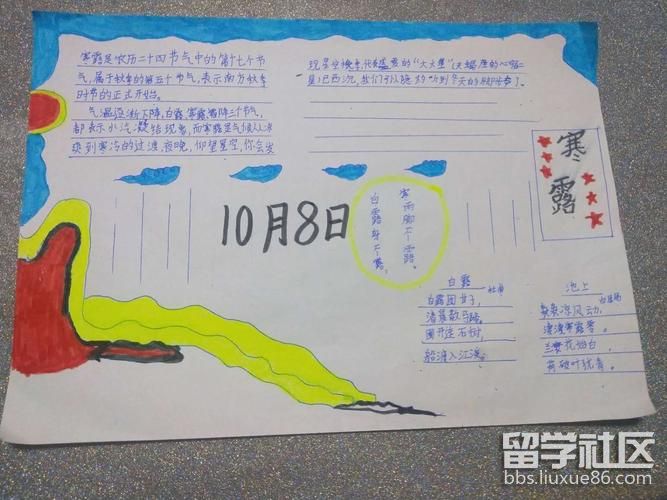 寒露是农历二十四节气中的第十七个节
气,属于秋季的第五个节气,表示南方秋季
时节的正式开始。
气温逐渐下降,白露、寒露、霜降三个节气,
都表示水汽凝结现象,而寒露是气候从凉
爽到寒冷的过渡。夜晚,仰望星空,你会发
现星空换季,代表盛夏的“大火星”(天蝎座的心宿二
星)已西沉。我们可以隐约听到冬天的脚步声了。
寒露
10月8日
寒露脚不露。
白露身不露,
白露
杜甫
白露团甘子,
清晨散马蹄。
圃开连石树,
船渡入江溪。
池上
白居易
袅袅凉风动,
凄凄寒露零。
兰衰花始白,
荷破叶犹青。
留学社区
bbs.liuxue86.com